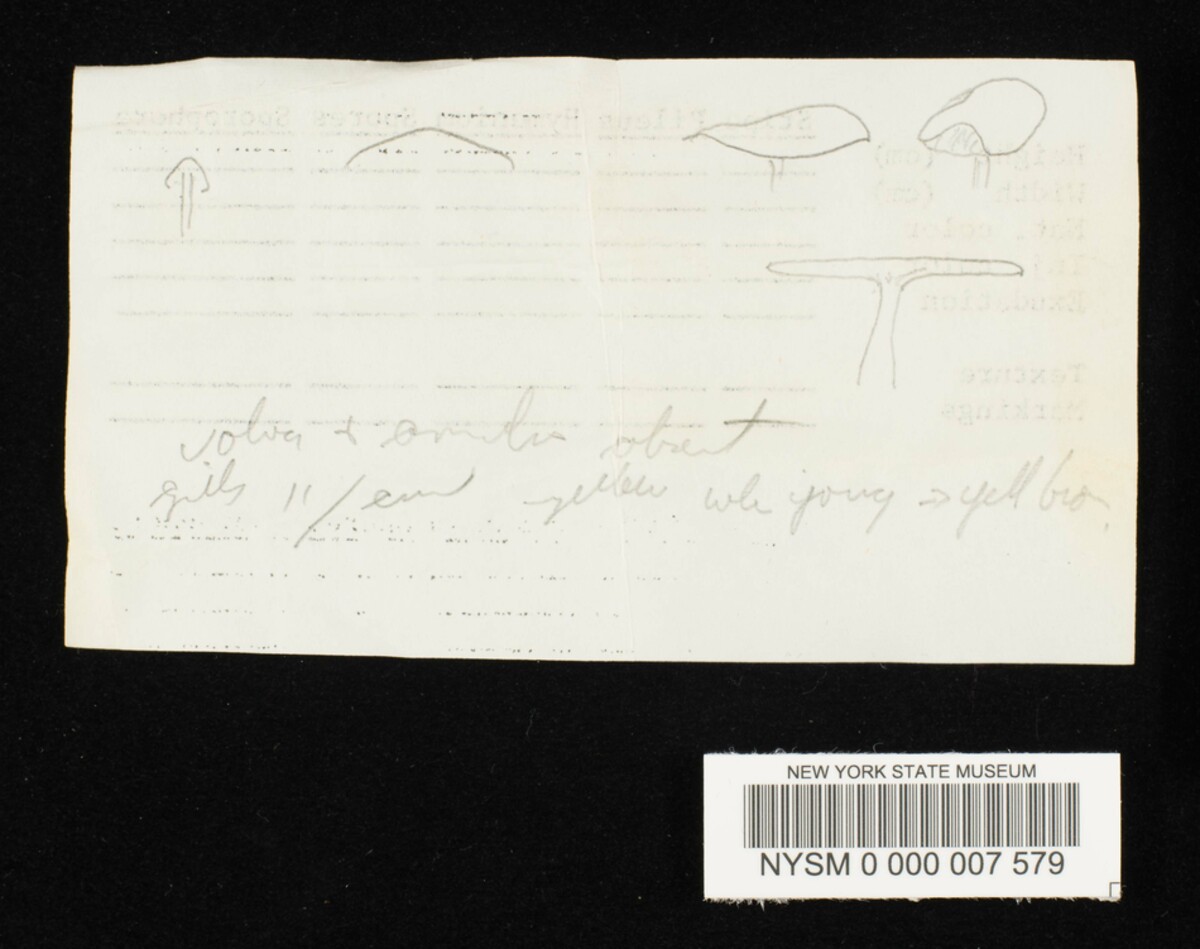 Stipe Pileus Hymenium Spores Sporophore
Height (cm)
Width (cm)
Nat. color
Exudation
Texture
Markings
volva + annulus absent
gills 11/cm yellow whe young → yell brow
NEW YORK STATE MUSEUM
NYSM 0 000 007 579